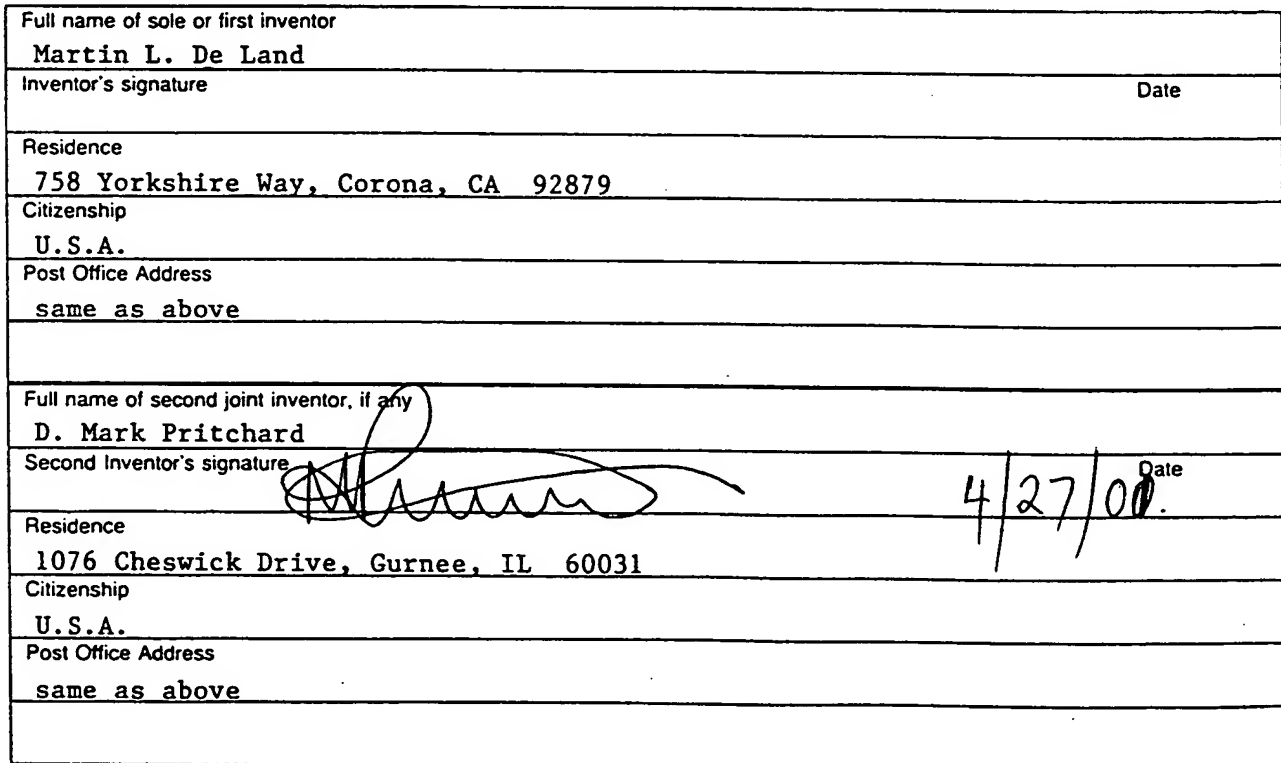 Full name of sole or first inventor
Martin L. De Land
Inventor's signature Date
Residence
758 Yorkshire Way, Corona, CA 92879
Citizenship
U.S.A.
Post Office Address
same as above
Full name of second joint inventor, if any
D. Mark Pritchard
Second Inventor's signature Date
4/27/
Residence
1076 Cheswick Drive, Gurnee, IL 60031
Citizenship
U.S.A.
Post Office Address
same as above